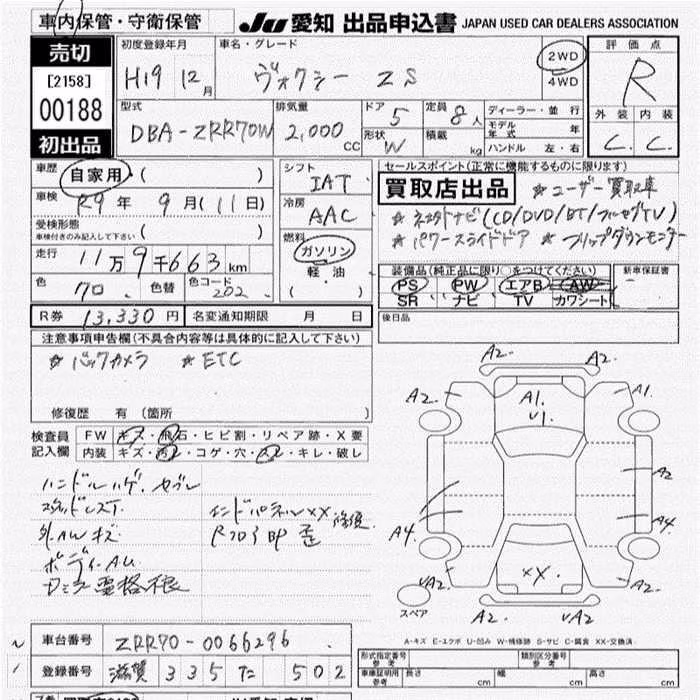 車内保管・守衛保管
JU 愛知 出品申込書 JAPAN USED CAR DEALERS ASSOCIATION
売切
[2158]
00188
初出品
初度登録年月
H19 12月
車名・グレード
ヴォクシー ZS
2WD
4WD
評価点
R
外装 内装
C. C.
型式
DBA-ZRR70W
排気量
2,000 CC
ドア 5
形状 W
定員 8人
積載 kg
ディーラー・並行
モデル年式 年
ハンドル 左・右
車歴 自家用・( )
車検 R9年 9月(11日)
受検形態
車検付きのみ記入して下さい ( )
走行 11万9千663km
色 70
色替
色コード 202
シフト IAT
冷房 AAC
燃料
ガソリン
軽・油
( )
セールスポイント(正常に機能するものに限ります)
買取店出品 ☆ユーザー買取車
☆パワースライドドア ☆フリップダウンモニター
装備品(純正品に限り○をつけてください)
PS PW エアB AW
SR ナビ TV カワシート
新車保証書
R券 13,330円 名変通知期限 月 日
後日品
注意事項申告欄(不具合内容等は具体的に記入して下さい)
☆バックカメラ ☆ETC
修復歴 有 (箇所 )
検査員
記入欄
FW キズ・飛石・ヒビ割・リペア跡・X要
内装 キズ・汚レ・コゲ・穴・スレ・キレ・破レ
外AWキズ
A2. A2.
A2. A1.
A1.
U1.
A2
A4. A4.
UA2. A2.
XX.
A2. UA2
スペア
A-キズ E-エクボ U-凹み W-補修跡 S-サビ C-腐食 XX-交換済
車台番号 ZRR70-0066296
登録番号 滋賀 335 た 502
形式指定番号
参考
類別区分番号
参考
車庫証明用
参考
長さ cm 幅 cm 高さ cm